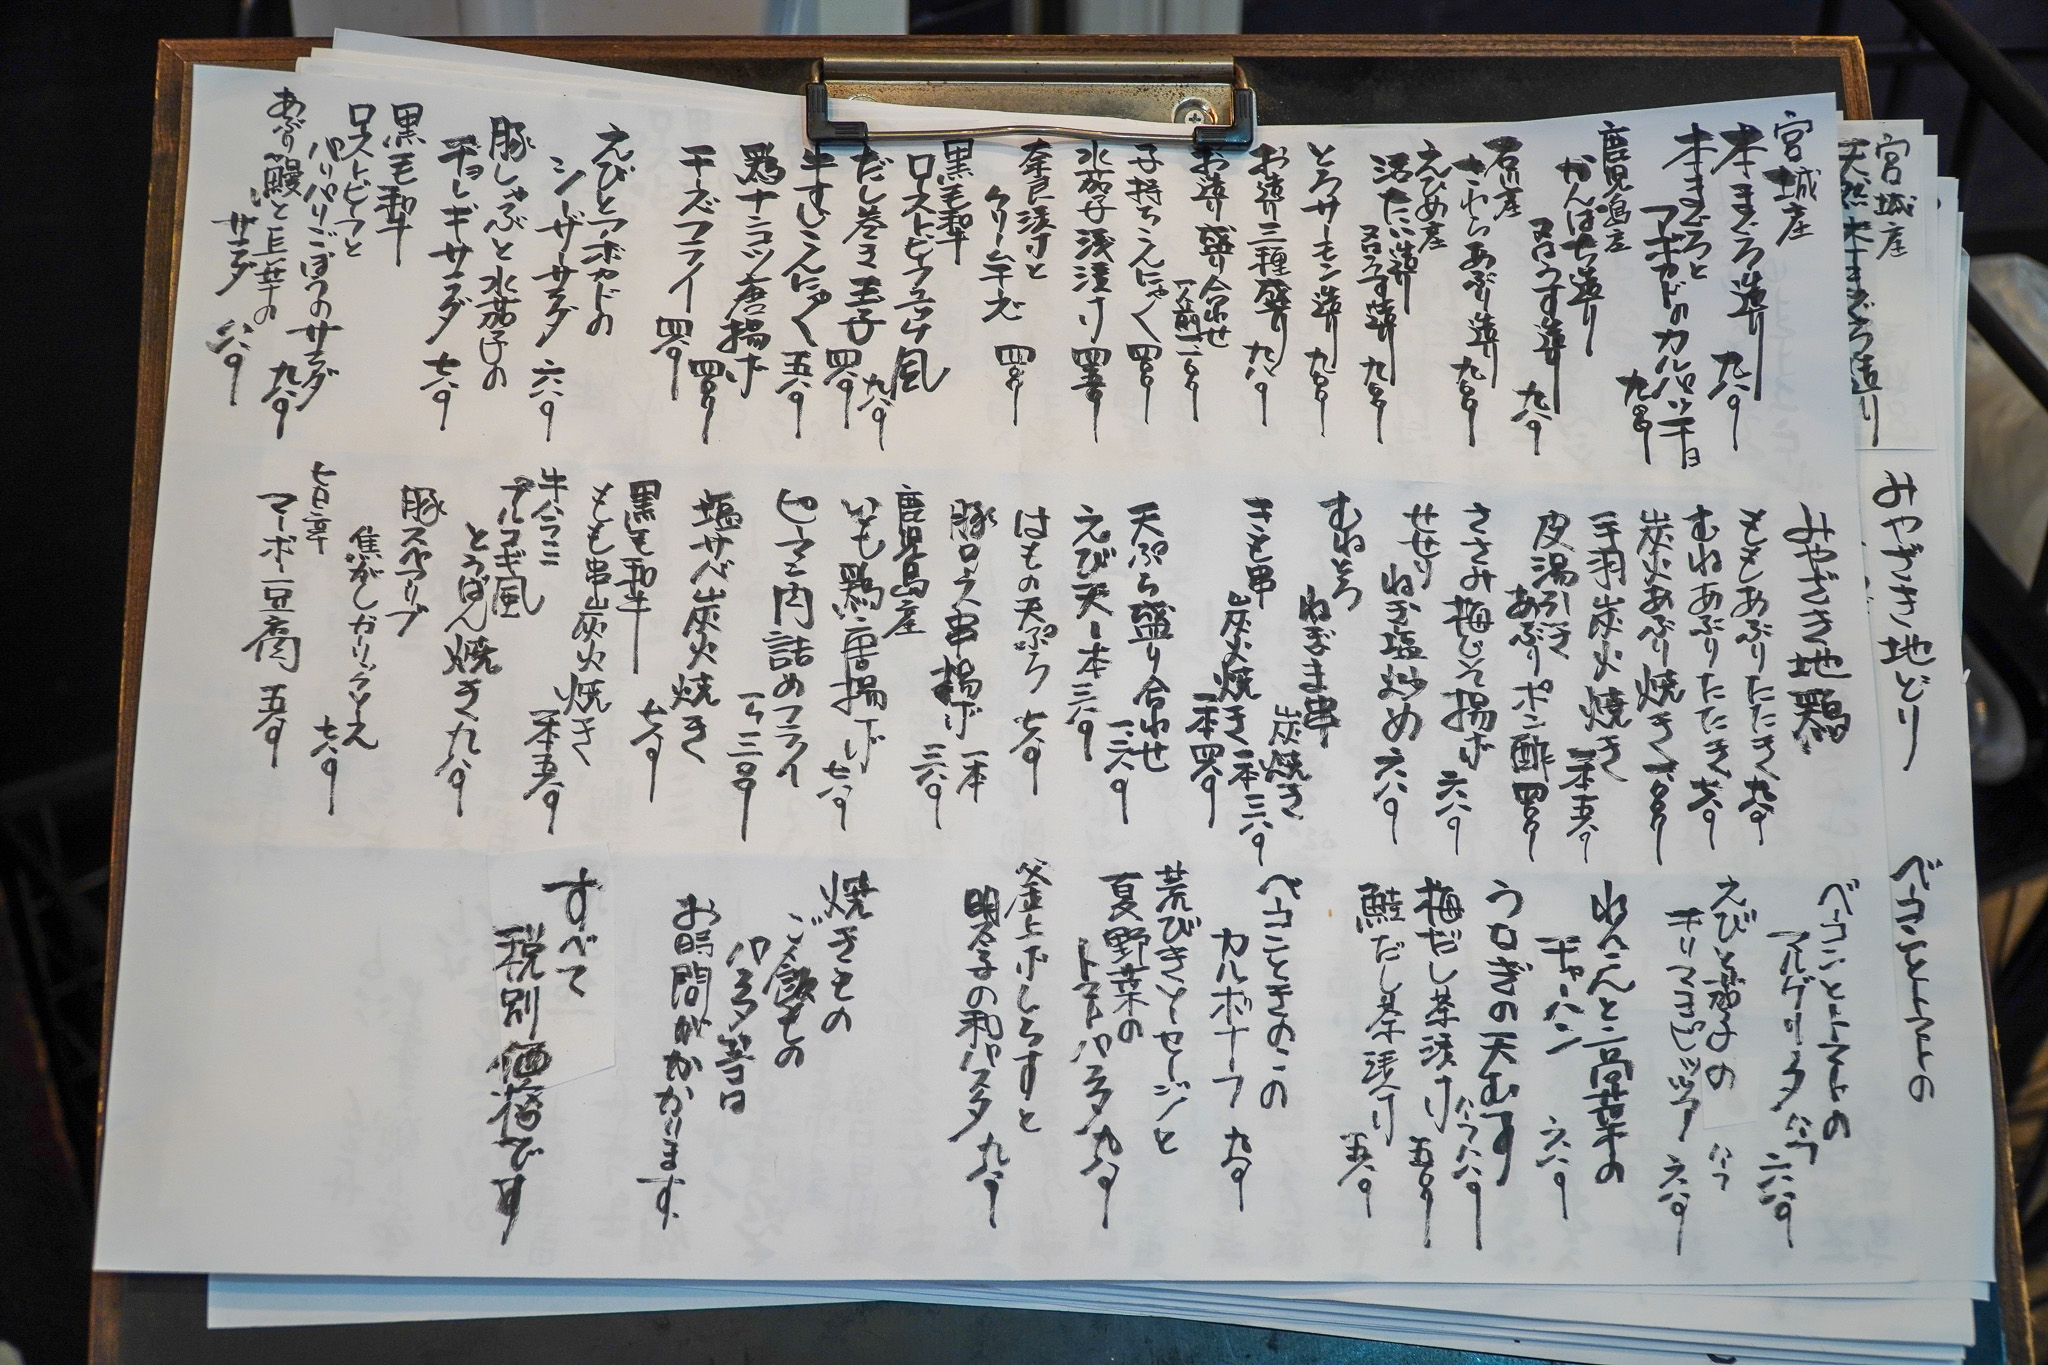 宮城産
本まぐろ造り 九八〇
本まぐろと
アボカドのカルパッチョ
九八〇
鹿児島産
かんぱち造り
又はうす造り 九八〇
石川産
さわらあぶり造り 九八〇
えひめ産
活たい造り
又はうす造り 九八〇
とろサーモン造り 九八〇
お造り二種盛り 九八〇
お造り盛り合わせ
子持ちこんにゃく 四八〇
水茄子浅漬け 四五〇
奈良漬けと
クリームチーズ 四八〇
黒毛和牛
ローストビーフユッケ風
九八〇
だし巻き玉子 四八〇
牛すじこんにゃく 五八〇
鶏ナンコツ唐揚げ
四八〇
チーズフライ 四八〇
えびとアボカドの
シーザーサラダ 六八〇
豚しゃぶと水茄子の
チョレギサラダ 七八〇
黒毛和牛
ローストビーフと
パリパリごぼうのサラダ
九八〇
サラダ 八八〇
みやざき地鶏
ももあぶりたたき 九八〇
むねあぶりたたき 七八〇
炭火あぶり焼き
手羽炭火焼き
一本五八〇
皮湯引き
あぶりポン酢 四八〇
ささみ梅しそ揚げ
六八〇
せせり
ねぎ塩炒め 六八〇
むねとろ
ねぎま串
炭焼き
一本三八〇
きも串
炭火焼き
一本四八〇
天ぷら盛り合わせ
えび天一本三八〇
はもの天ぷら 七八〇
豚ロース串揚げ 一本
三八〇
鹿児島産
いも鶏唐揚げ
七八〇
ピーマン肉詰めフライ
塩サバ炭火焼き
七八〇
黒毛和牛
もも串炭火焼き
一本五八〇
牛ハラミ
プルコギ風
とうばん焼き 九八〇
豚スペアリブ
焦がしガーリックソース
七八〇
マーボー豆腐 五八〇
ベーコンとトマトの
マルゲリータ ハーフ
六八〇
えびと茄子の
テリマヨピッツァ ハーフ
六八〇
チャーハン 六八〇
うなぎの天むす
梅だし茶漬け
五八〇
鮭だし茶漬け
五八〇
ベーコンときのこの
カルボナーラ 九八〇
荒びきソーセージと
夏野菜の
トマトパスタ 九八〇
釜上げしらすと
明太子の和パスタ 九八〇
焼きもの
ご飯もの
パスタ等は
お時間がかかります。
すべて
税別価格です
宮城産
天然本まぐろ造り
みやざき地どり